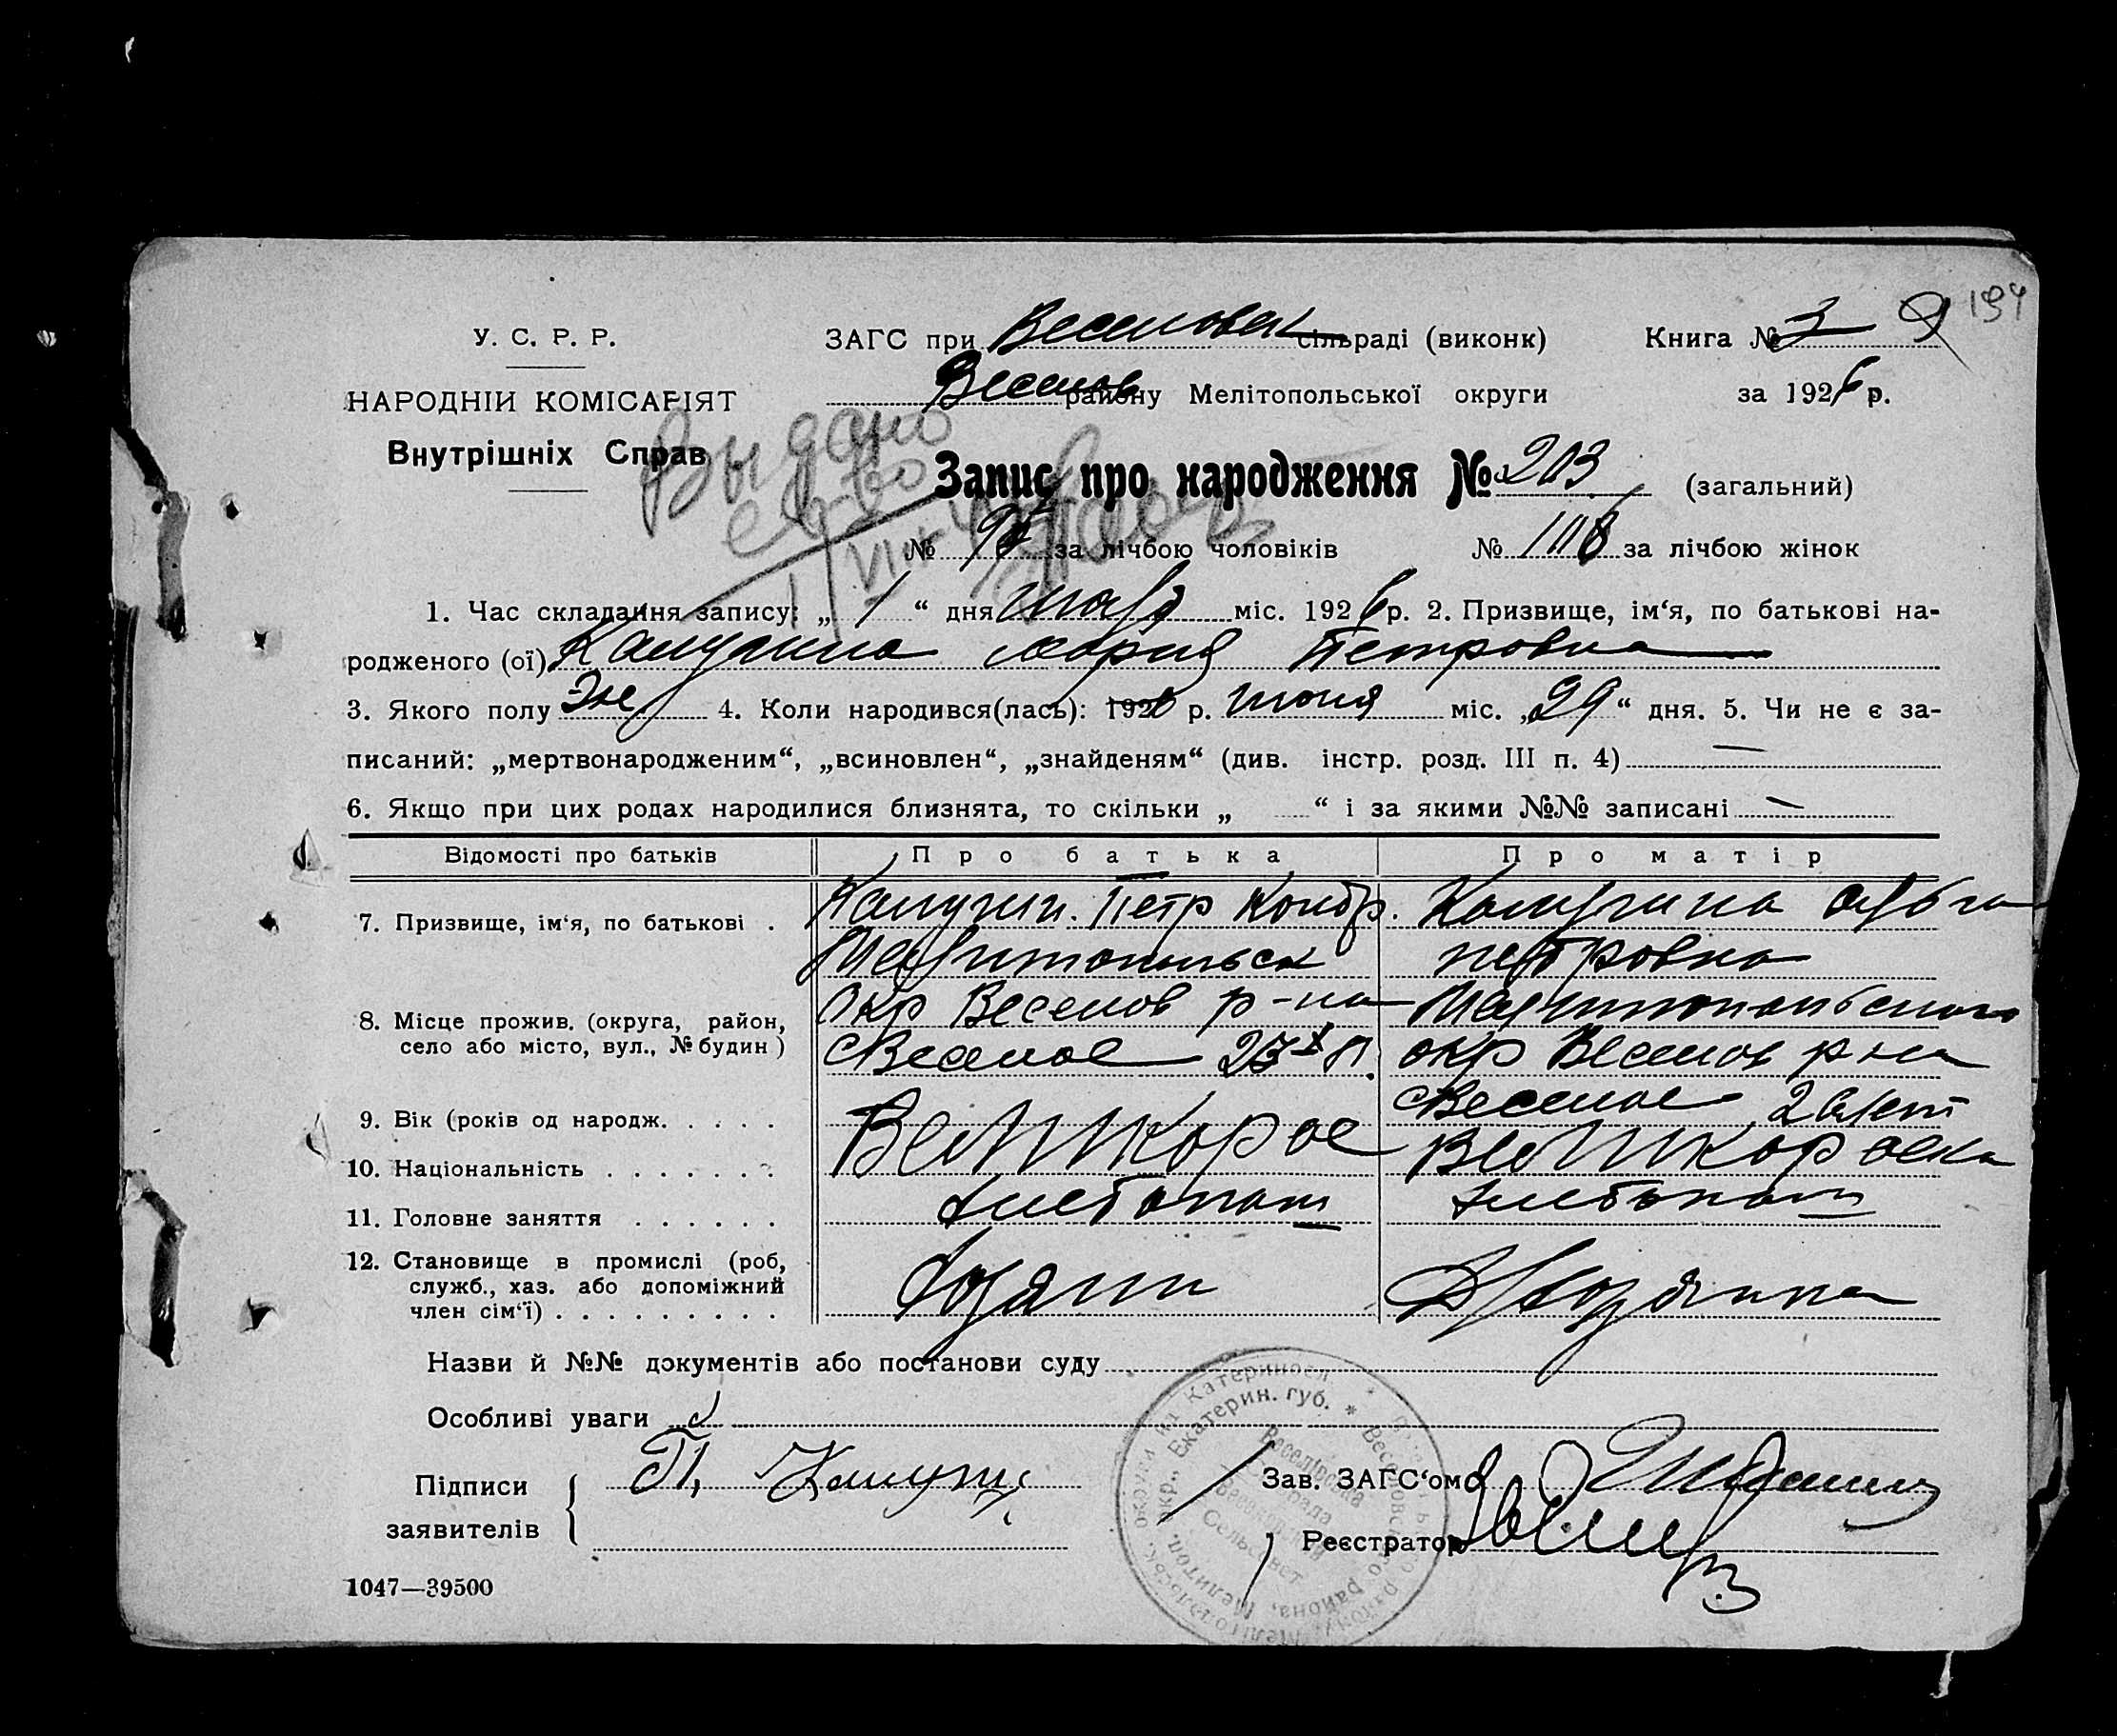 194
У. С. Р. Р.
ЗАГС при Веселовск сільраді (виконк)
Книга № 3
НАРОДНІЙ КОМІСАРІЯТ
Веселов району Мелітопольської округи
за 1926 р.
Внутрішніх Справ
Выдано
Запис про народження № 203 (загальний)
№ за лічбою чоловіків
№ за лічбою жінок
1. Час складання запису: „ 1 “ дня міс. 1926 р. 2. Призвище, ім‘я, по батькові на-
родженого (ої) Калугина Мария Петровна
3. Якого полу Же 4. Коли народився(лась): 1926 р. июня міс. „29“ дня. 5. Чи не є за-
писаний: „мертвонародженим“, „всиновлен“, „знайденям“ (див. інстр. розд. III п. 4) —
6. Якщо при цих родах народилися близнята, то скільки „ “ і за якими №№ записані —
Відомості про батьків
Про батька
Про матір
7. Призвище, ім‘я, по батькові .
Калугин. Петр Кондр.
Калугина
Петровна
8. Місце прожив. (округа, район,
село або місто, вул., № будин)
Мелитопольск
Окр Веселов р-на
с Веселое
Мелитопольского
окр Веселов р на
с Веселое 26 лет
9. Вік (років од народж. . . . .
10. Національність . . . . . . .
Великорос
Великороска
11. Головне заняття . . . . . .
хлебопаш
хлебопаш
12. Становище в промислі (роб,
служб., хаз. або допоміжний
член сім‘ї) . . . . . . . . .
Хозяин
Хозяина
Назви й №№ документів або постанови суду
Особливі уваги
Підписи
заявителів
П. Калугин
Зав. ЗАГС‘ом
Реєстратор
Екатерин. губ. * Веселовского района, Мелитоп. окр.
Сельсовет
1047—39500